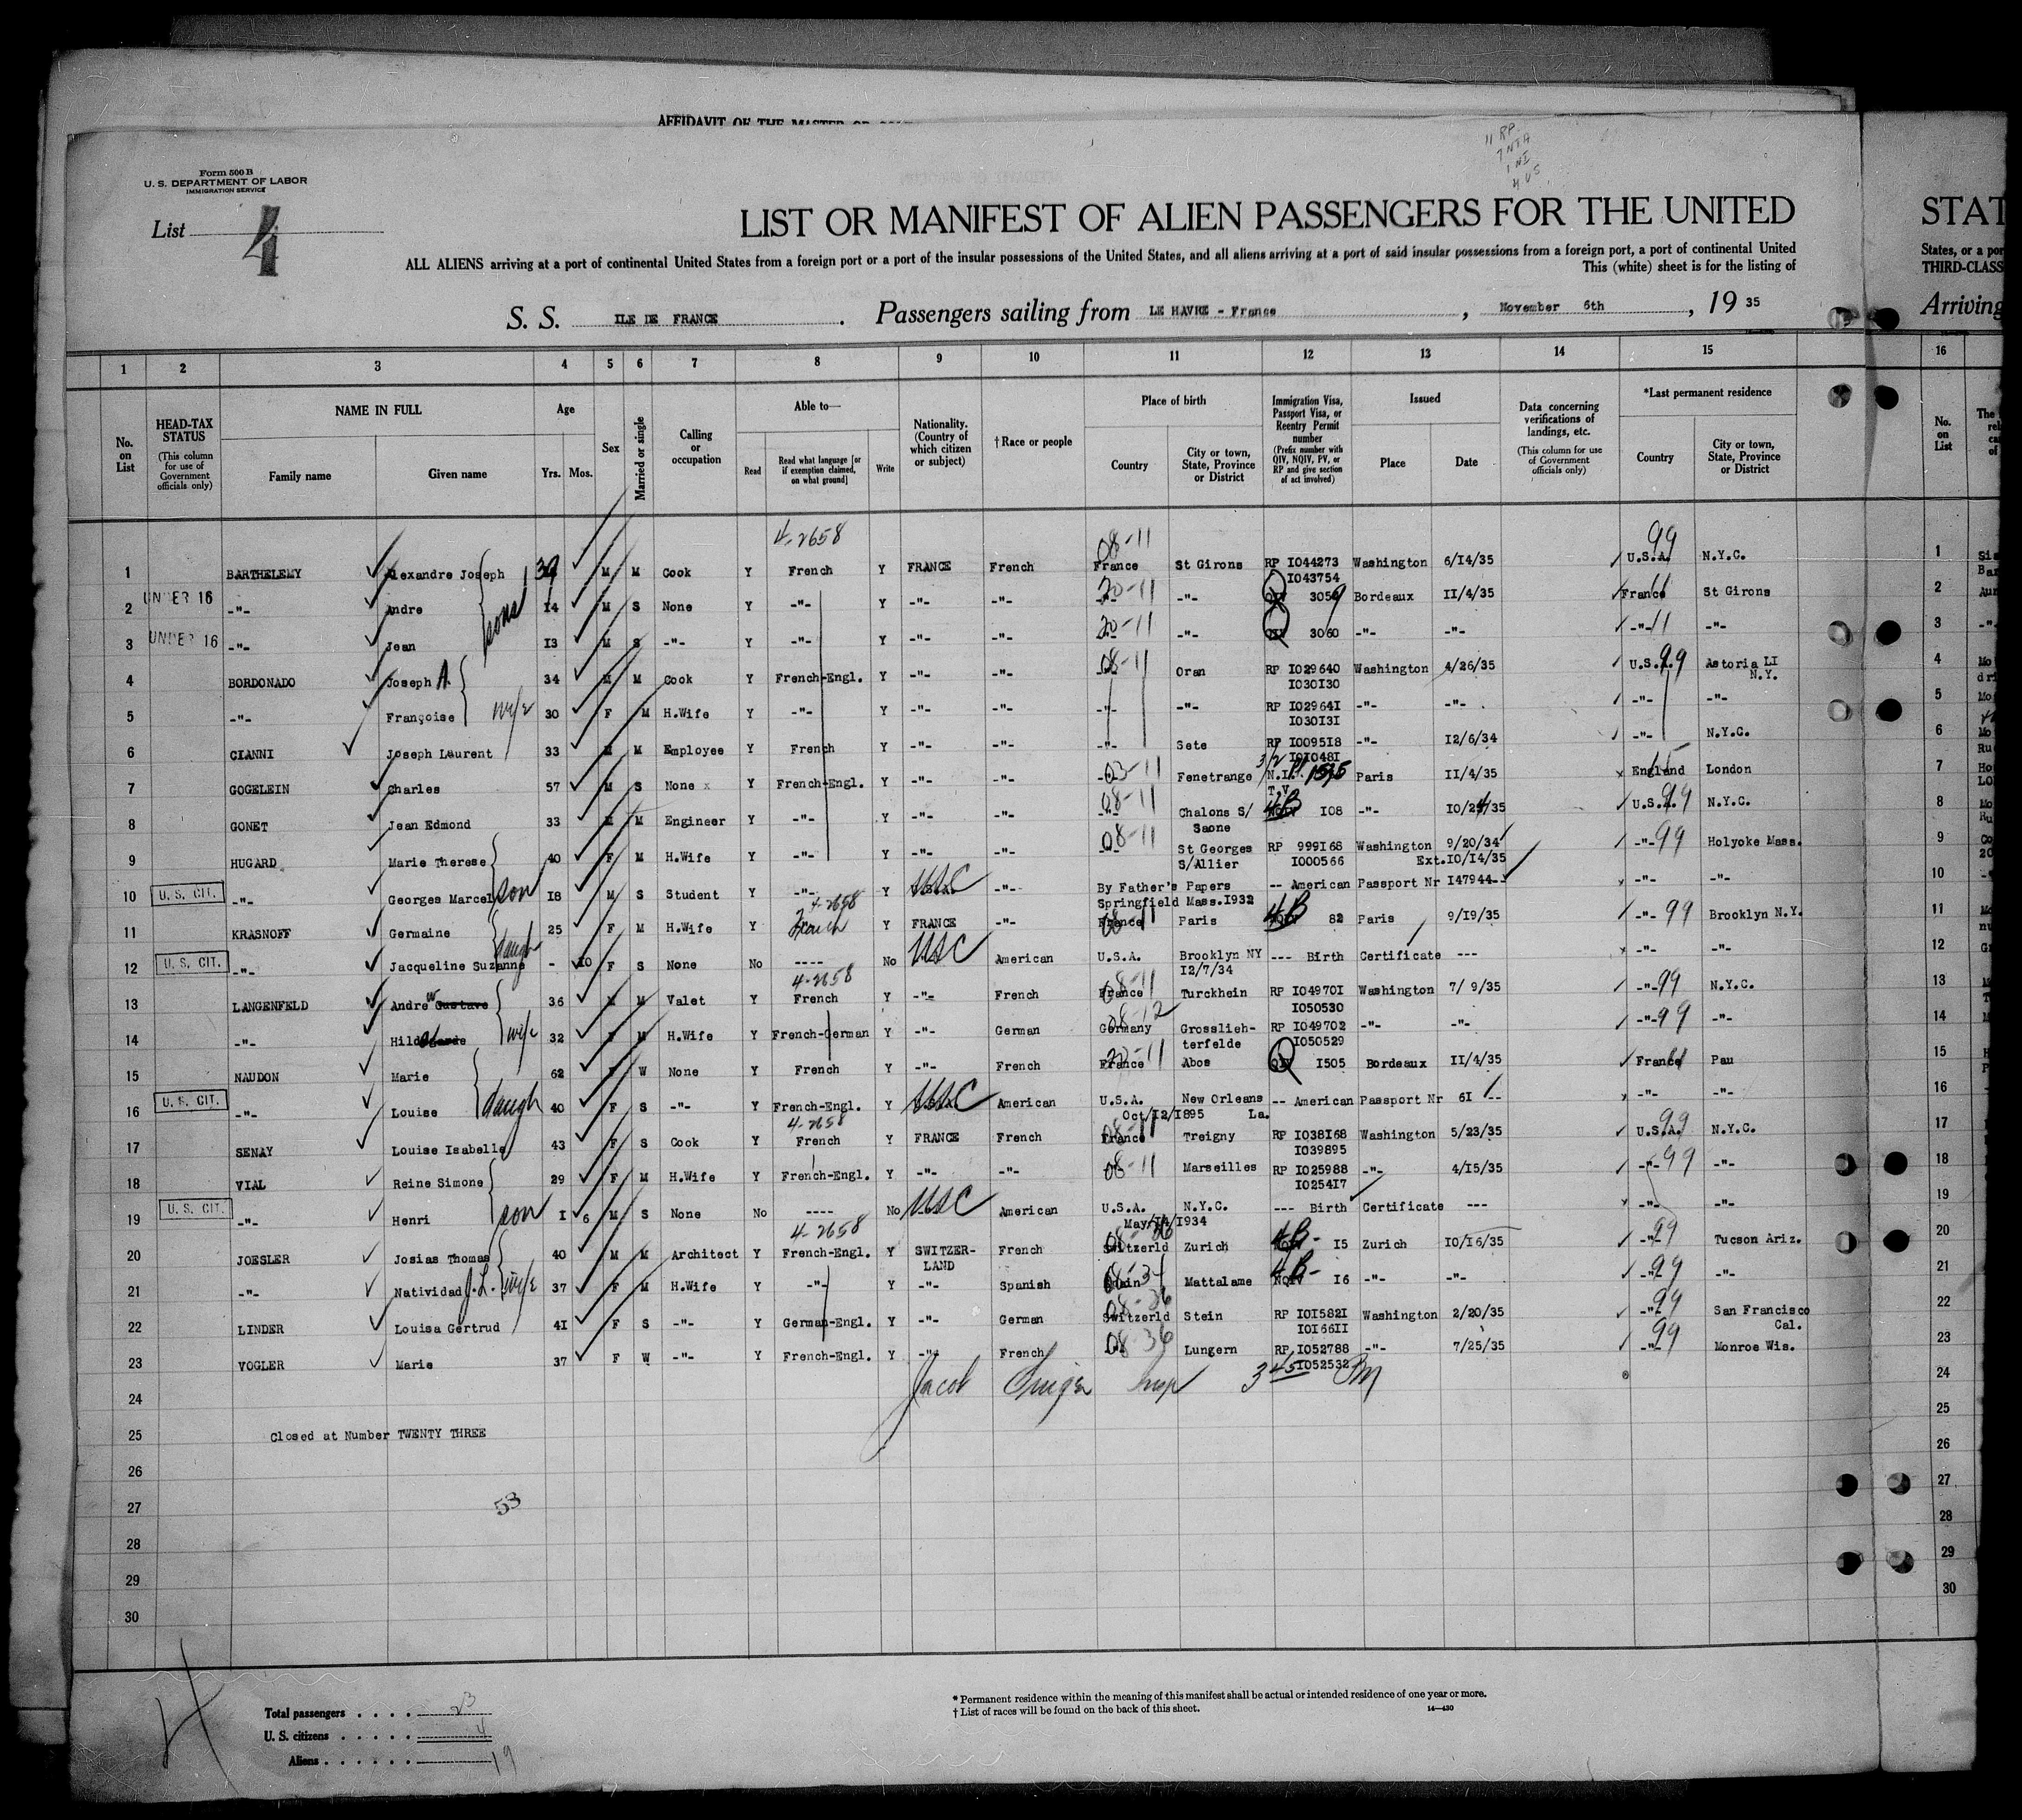 AFFIDAVIT OF THE MASTER OR
11 RP
7 NIA
1 NI
4 US
Form 500 B
U. S. DEPARTMENT OF LABOR
IMMIGRATION SERVICE
List 4
LIST OR MANIFEST OF ALIEN PASSENGERS FOR THE UNITED
STAT
ALL ALIENS arriving at a port of continental United States from a foreign port or a port of the insular possessions of the United States, and all aliens arriving at a port of said insular possessions from a foreign port, a port of continental United
States, or a por
This (white) sheet is for the listing of
THIRD-CLASS
S. S. ILE DE FRANCE . Passengers sailing from LE HAVRE - France , November 6th , 19 35
Arriving
1 2 3 4 5 6 7 8 9 10 11 12 13 14 15 16
No. on List
HEAD-TAX STATUS (This column for use of Government officials only)
NAME IN FULL Family name Given name
Age Yrs. Mos.
Sex
Married or single
Calling or occupation
Able to— Read Read what language [or if exemption claimed, on what ground] Write
Nationality. (Country of which citizen or subject)
† Race or people
Place of birth Country City or town, State, Province or District
Immigration Visa, Passport Visa, or Reentry Permit number (Prefix number with QIV, NQIV, PV, or RP and give section of act involved)
Issued Place Date
Data concerning verifications of landings, etc. (This column for use of Government officials only)
*Last permanent residence Country City or town, State, Province or District
No. on List
4-2658 08-11 99
1 BARTHELEMY Alexandre Joseph 39 M M Cook Y French Y FRANCE French France St Girons RP I044273 Washington 6/14/35 U.S.A. N.Y.C. 1
I043754
UNDER 16 20-11 11
2 -"- Andre sons 14 M S None Y -"- Y -"- -"- -"- -"- QIV 3059 Bordeaux II/4/35 France St Girons 2
UNDER 16 20-11
3 -"- Jean I3 M S -"- Y -"- Y -"- -"- -"- -"- QIV 3060 -"- -"- -"- 11 -"- 3
08-11 99
4 BORDONADO Joseph A. 34 M M Cook Y French-Engl. Y -"- -"- Oran RP I029640 Washington 4/26/35 U.S.A. Astoria LI 4
I030I30 N.Y.
5 -"- Françoise wife 30 F M H.Wife Y -"- Y -"- -"- -"- -"- RP I02964I -"- -"- -"- -"- 5
I030I3I
6 CIANNI Joseph Laurent 33 M M Employee Y French Y -"- -"- -"- Sete RP I0095I8 -"- I2/6/34 -"- N.Y.C. 6
I0I048I
03-11
7 GOGELEIN Charles 57 M S None x Y French-Engl. Y -"- -"- Fenetrange N.I. Paris II/4/35 England London 7
T.V
08-11 4B 99
8 GONET Jean Edmond 33 M M Engineer Y -"- Y -"- -"- -"- Chalons S/ NQIV I08 -"- U.S.A. N.Y.C. 8
Saone
08-11
9 HUGARD Marie Therese 40 F M H.Wife Y -"- Y -"- -"- -"- St Georges RP 999I68 Washington 9/20/34 -"- 99 Holyoke Mass. 9
S/Allier I000566 Ext.I0/I4/35
10 U. S. CIT. -"- Georges Marcel son I8 M S Student Y -"- Y USC -"- By Father's Papers -- American Passport Nr I47944-- -"- -"- 10
Springfield Mass.I932
4-2658 08-11 4B
11 KRASNOFF Germaine 25 F M H.Wife Y French Y FRANCE -"- France Paris NQIV 82 Paris 9/I9/35 -"- 99 Brooklyn N.Y. 11
12 U. S. CIT. -"- Jacqueline Suzanne daugh - I0 F S None No ---- No USC American U.S.A. Brooklyn NY --- Birth Certificate --- -"- -"- 12
I2/7/34
4-2658 08-11
13 LANGENFELD Andre W Gustave 36 M M Valet Y French Y -"- French France Turckhein RP I04970I Washington 7/ 9/35 -"- 99 N.Y.C. 13
I050530
08-12
14 -"- Hildegarde wife 32 F M H.Wife Y French-German Y -"- German Germany Grosslieh- RP I049702 -"- -"- -"- 99 -"- 14
terfelde I050529
20-11
15 NAUDON Marie 62 F W None Y French Y -"- French France Abos QIV I505 Bordeaux II/4/35 France Pau 15
16 U. S. CIT. -"- Louise daugh 40 F S -"- Y French-Engl. Y USC American U.S.A. New Orleans -- American Passport Nr 6I -- -"- -"- 16
Oct/I2/I895 La.
4-2658 08-11 99
17 SENAY Louise Isabelle 43 F S Cook Y French Y FRANCE French France Treigny RP I038I68 Washington 5/23/35 U.S.A. N.Y.C. 17
I039895
08-11
18 VIAL Reine Simone 29 F M H.Wife Y French-Engl. Y -"- -"- Marseilles RP I025988 -"- 4/I5/35 -"- 99 -"- 18
I0254I7
19 U. S. CIT. -"- Henri son I 6 M S None No ---- No USC American U.S.A. N.Y.C. --- Birth Certificate --- -"- -"- 19
May/I4/I934
4-2658 08-36 4B-
20 JOESLER Josias Thomas 40 M M Architect Y French-Engl. Y SWITZER- French Switzerld Zurich NQIV I5 Zurich I0/I6/35 -"- 99 Tucson Ariz. 20
LAND
08-34 4B-
21 -"- Natividad J.L. wife 37 F M H.Wife Y -"- Y -"- Spanish Spain Mattalame NQIV I6 -"- -"- -"- 99 -"- 21
08-36
22 LINDER Louisa Gertrud 4I F S -"- Y German-Engl. Y -"- German Switzerld Stein RP I0I582I Washington 2/20/35 -"- 99 San Francisco 22
I0I66II Cal.
08-36
23 VOGLER Marie 37 F W -"- Y French-Engl. Y -"- French Lungern RP I052788 -"- 7/25/35 -"- 99 Monroe Wis. 23
I052532
Jacob Insp 3 45 PM
24 24
25 Closed at Number TWENTY THREE 25
26 26
27 53 27
28 28
29 29
30 30
H
Total passengers . . . . 23
U. S. citizens . . . . . 4
Aliens . . . . . . 19
* Permanent residence within the meaning of this manifest shall be actual or intended residence of one year or more.
† List of races will be found on the back of this sheet. 14—430